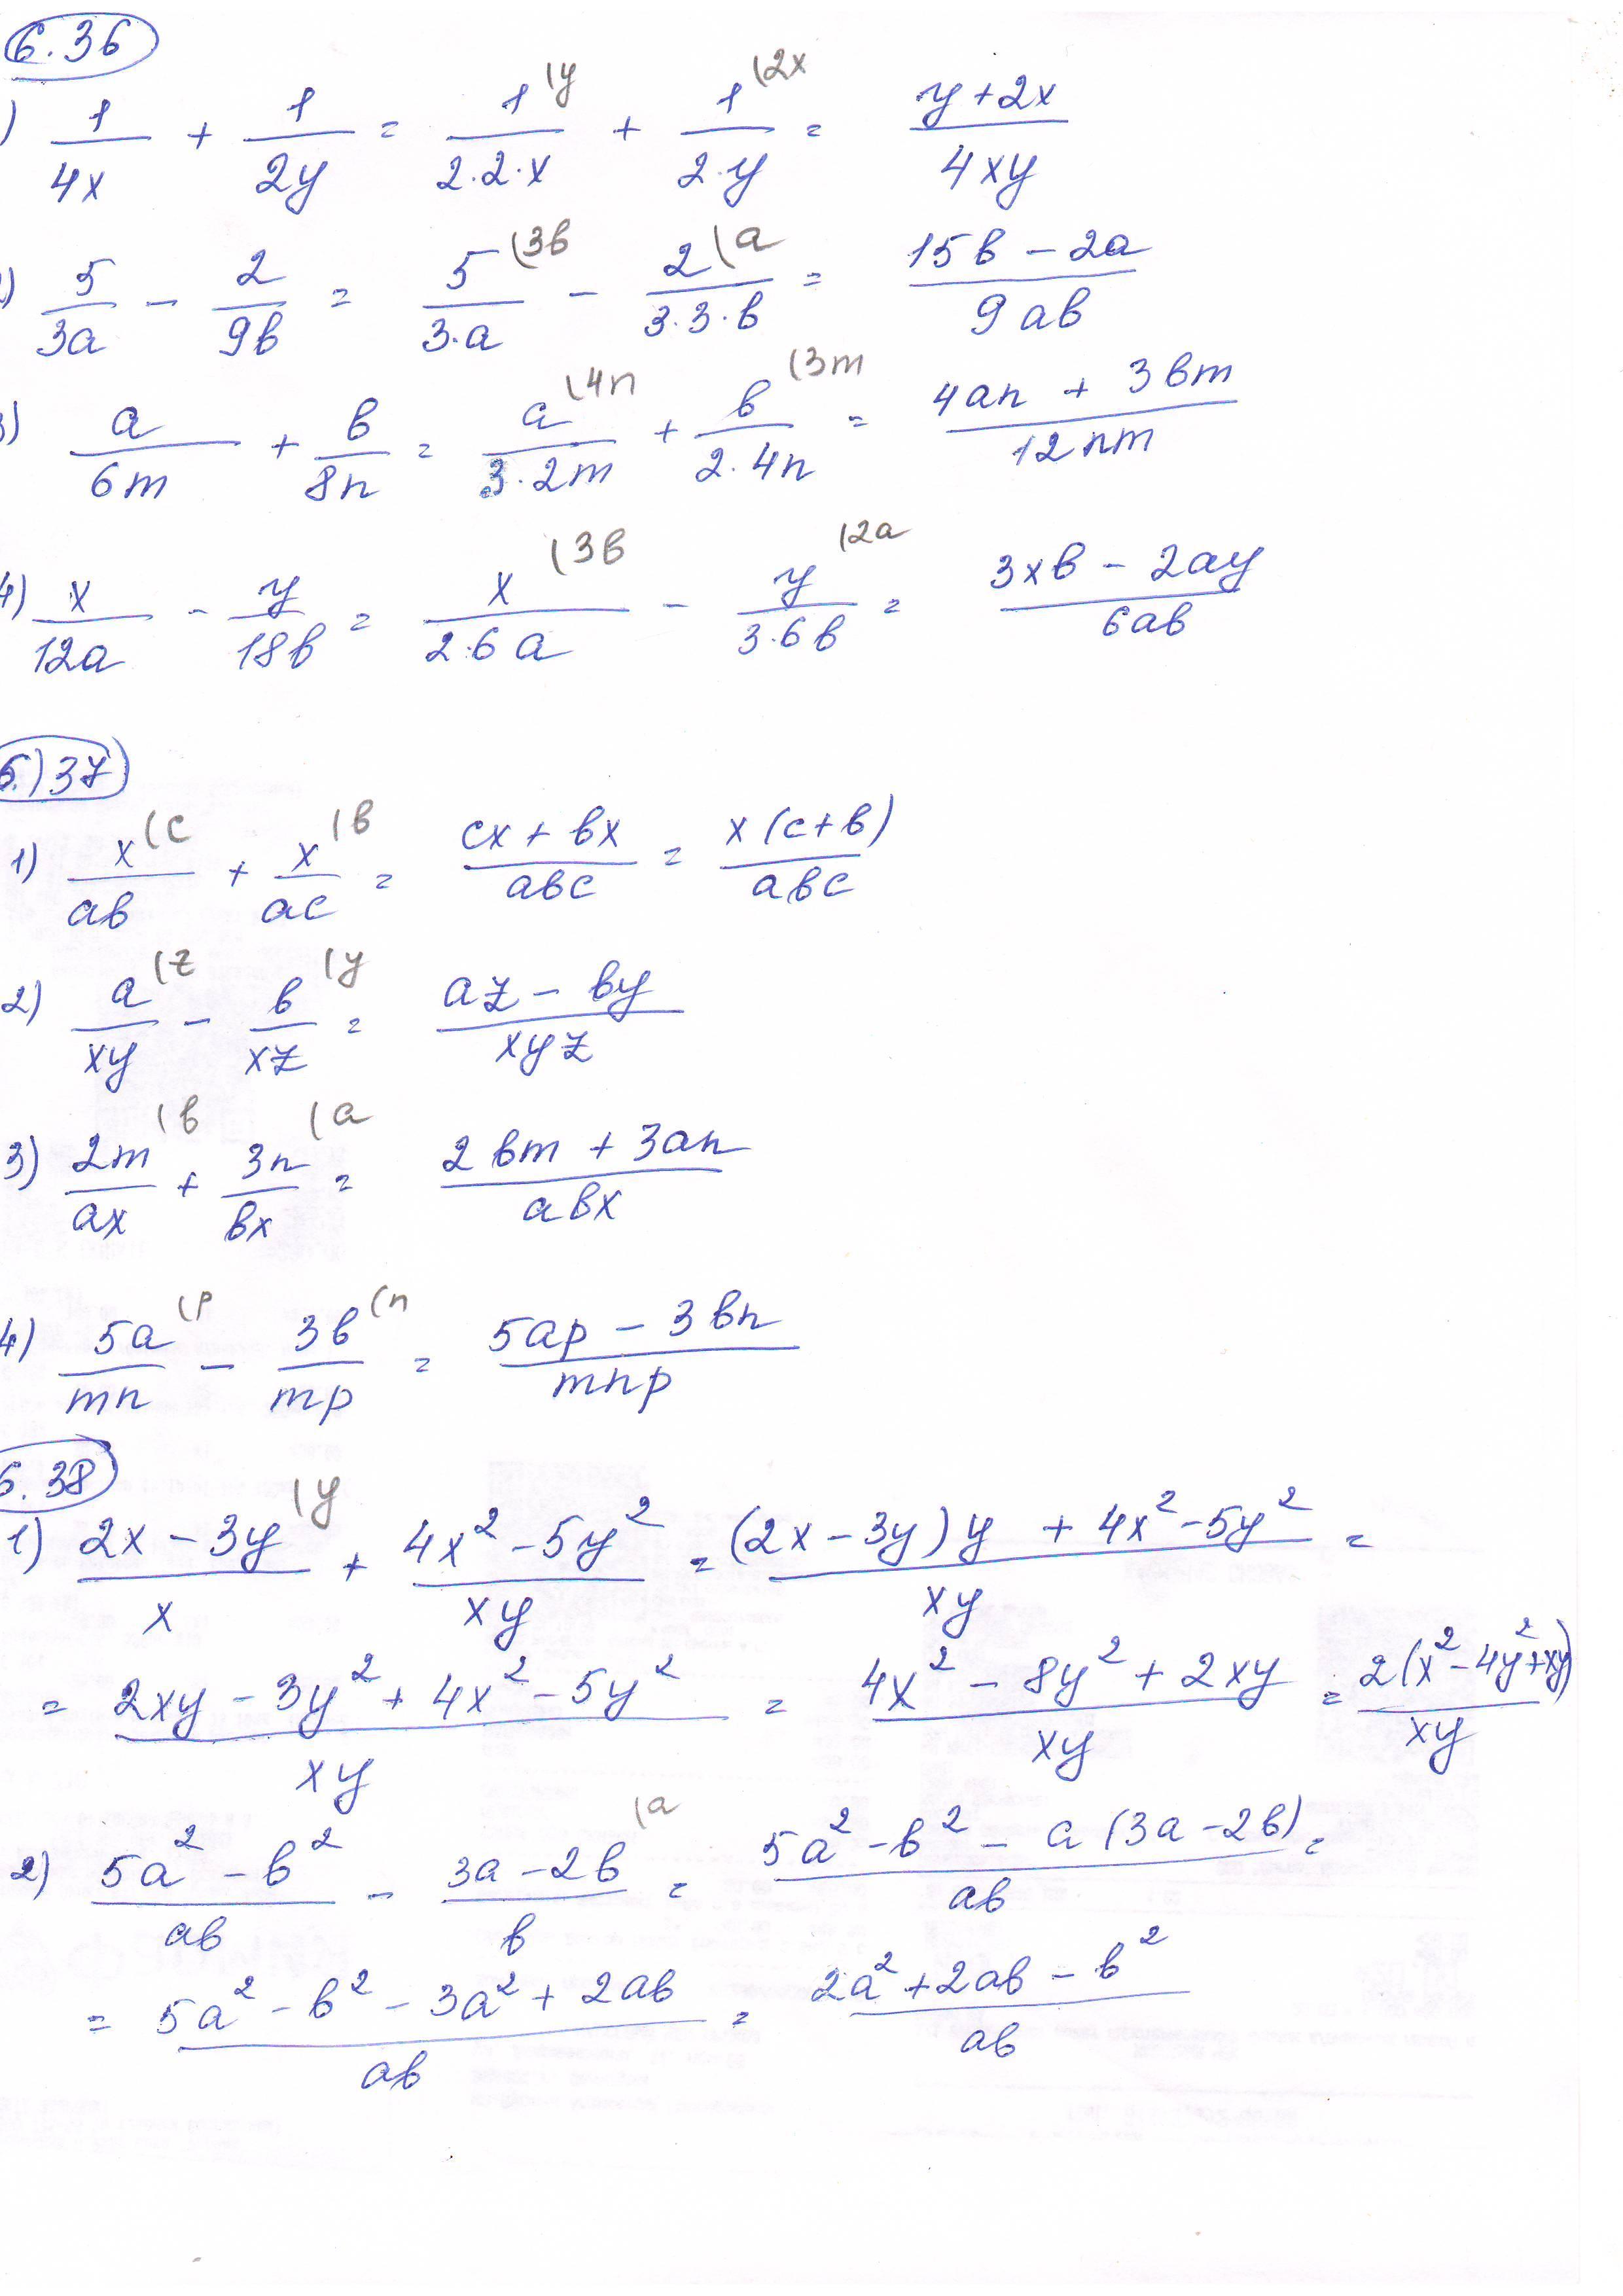 6.36
) 1/4x + 1/2y = 1(y/2·2·x + 1(2x/2·y = y+2x/4xy
) 5/3a - 2/9в = 5(3в/3·a - 2(a/3·3·в = 15в - 2a/9aв
) a/6m + в/8n = a(4n/3·2m + в(3m/2·4n = 4an + 3вm/12nm
4) x/12a - y/18в = x(3в/2·6a - y(2a/3·6в = 3xв - 2ay/6aв
6.)37)
1) x(c/aв + x(в/ac = cx + вx/aвc = x(c+в)/aвc
2) a(z/xy - в(y/xz = az - вy/xyz
3) 2m(в/ax + 3n(a/вx = 2вm + 3an/aвx
4) 5a(p/mn - 3в(n/mp = 5ap - 3вn/mnp
6.38
1) 2x - 3y(y/x + 4x² - 5y²/xy = (2x - 3y)y + 4x² - 5y²/xy =
= 2xy - 3y² + 4x² - 5y²/xy = 4x² - 8y² + 2xy/xy = 2(x² - 4y² + xy)/xy
2) 5a² - в²/aв - 3a - 2в(a/в = 5a² - в² - a(3a - 2в)/aв =
= 5a² - в² - 3a² + 2aв/aв = 2a² + 2aв - в²/aв